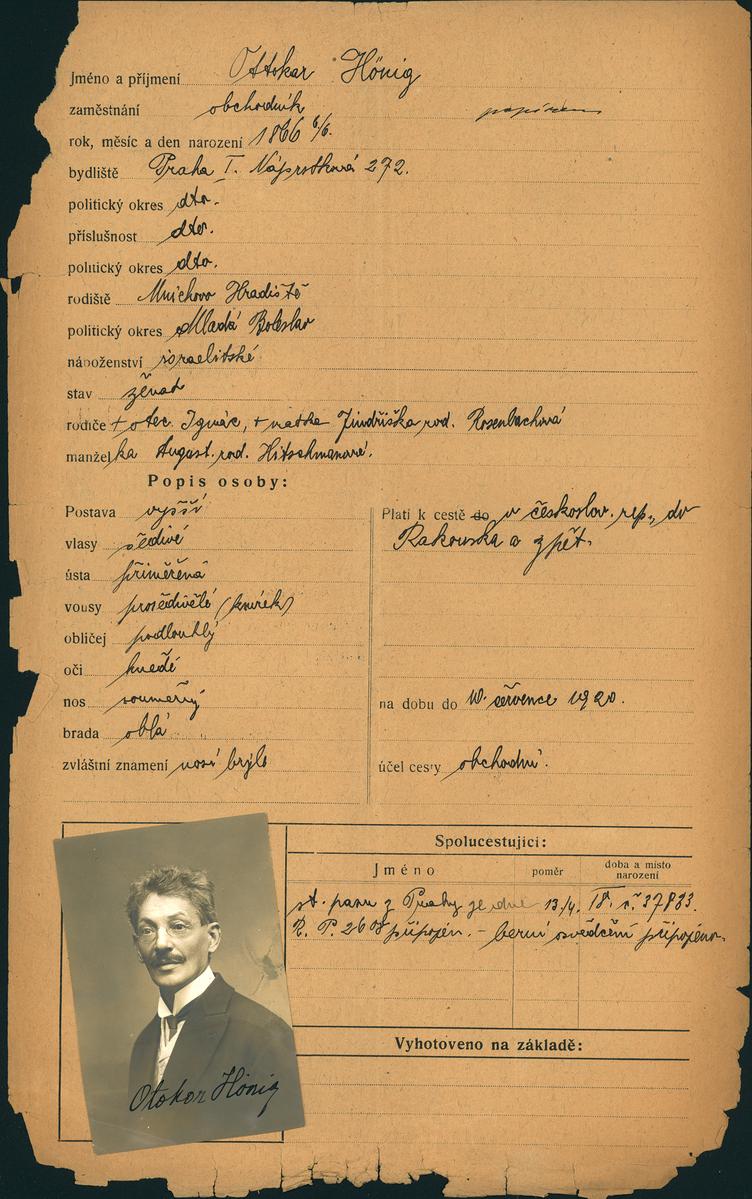 Jméno a příjmení Ottokar Hönig
zaměstnání obchodník
rok, měsíc a den narození 1866 6/6.
bydliště Praha I. Náprstková 272.
politický okres dto.
příslušnost dto.
politický okres dto.
rodiště Mnichovo Hradiště
politický okres Mladá Boleslav
náboženství israelitské
stav ženat
rodiče + otec Ignác, + matka Jindřiška rod. Rosenbachová
manželka August. rod. Hitschmanová.
Popis osoby:
Postava vyšší
vlasy šedivé
ústa přiměřená
vousy prošedivělé (knírek)
obličej podlouhlý
oči hnědé
nos souměrný
brada oblá
zvláštní znamení nosí brýle
Platí k cestě do v českoslov. rep., do
Rakouska a zpět.
na dobu do 10. července 1920.
účel cesty obchodní.
Spolucestující:
Jméno poměr doba a místo narození
st. panu z Prahy ze dne 13/4. č. 37833.
R. P. připojen. - berní osvědčení připojeno.
Vyhotoveno na základě:
Otokar Hönig